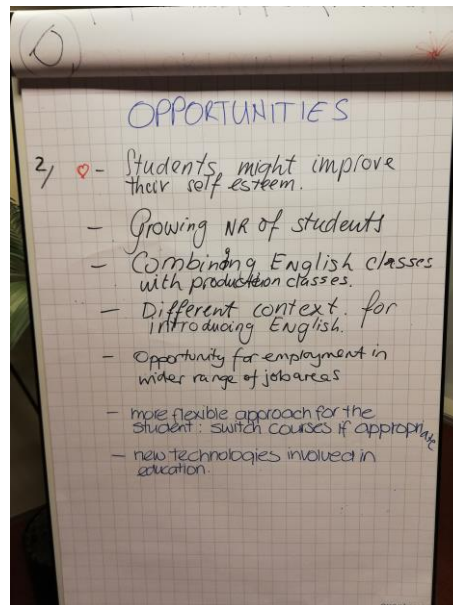 O
OPPORTUNITIES
2/ ♡ - Students might improve
their self esteem.
- Growing NR of students
- Combining English classes
with production classes.
- Different context for
introducing English.
- Opportunity for employment in
wider range of job areas
- more flexible approach for the
student: switch courses if appropriate
- new technologies involved in
education.